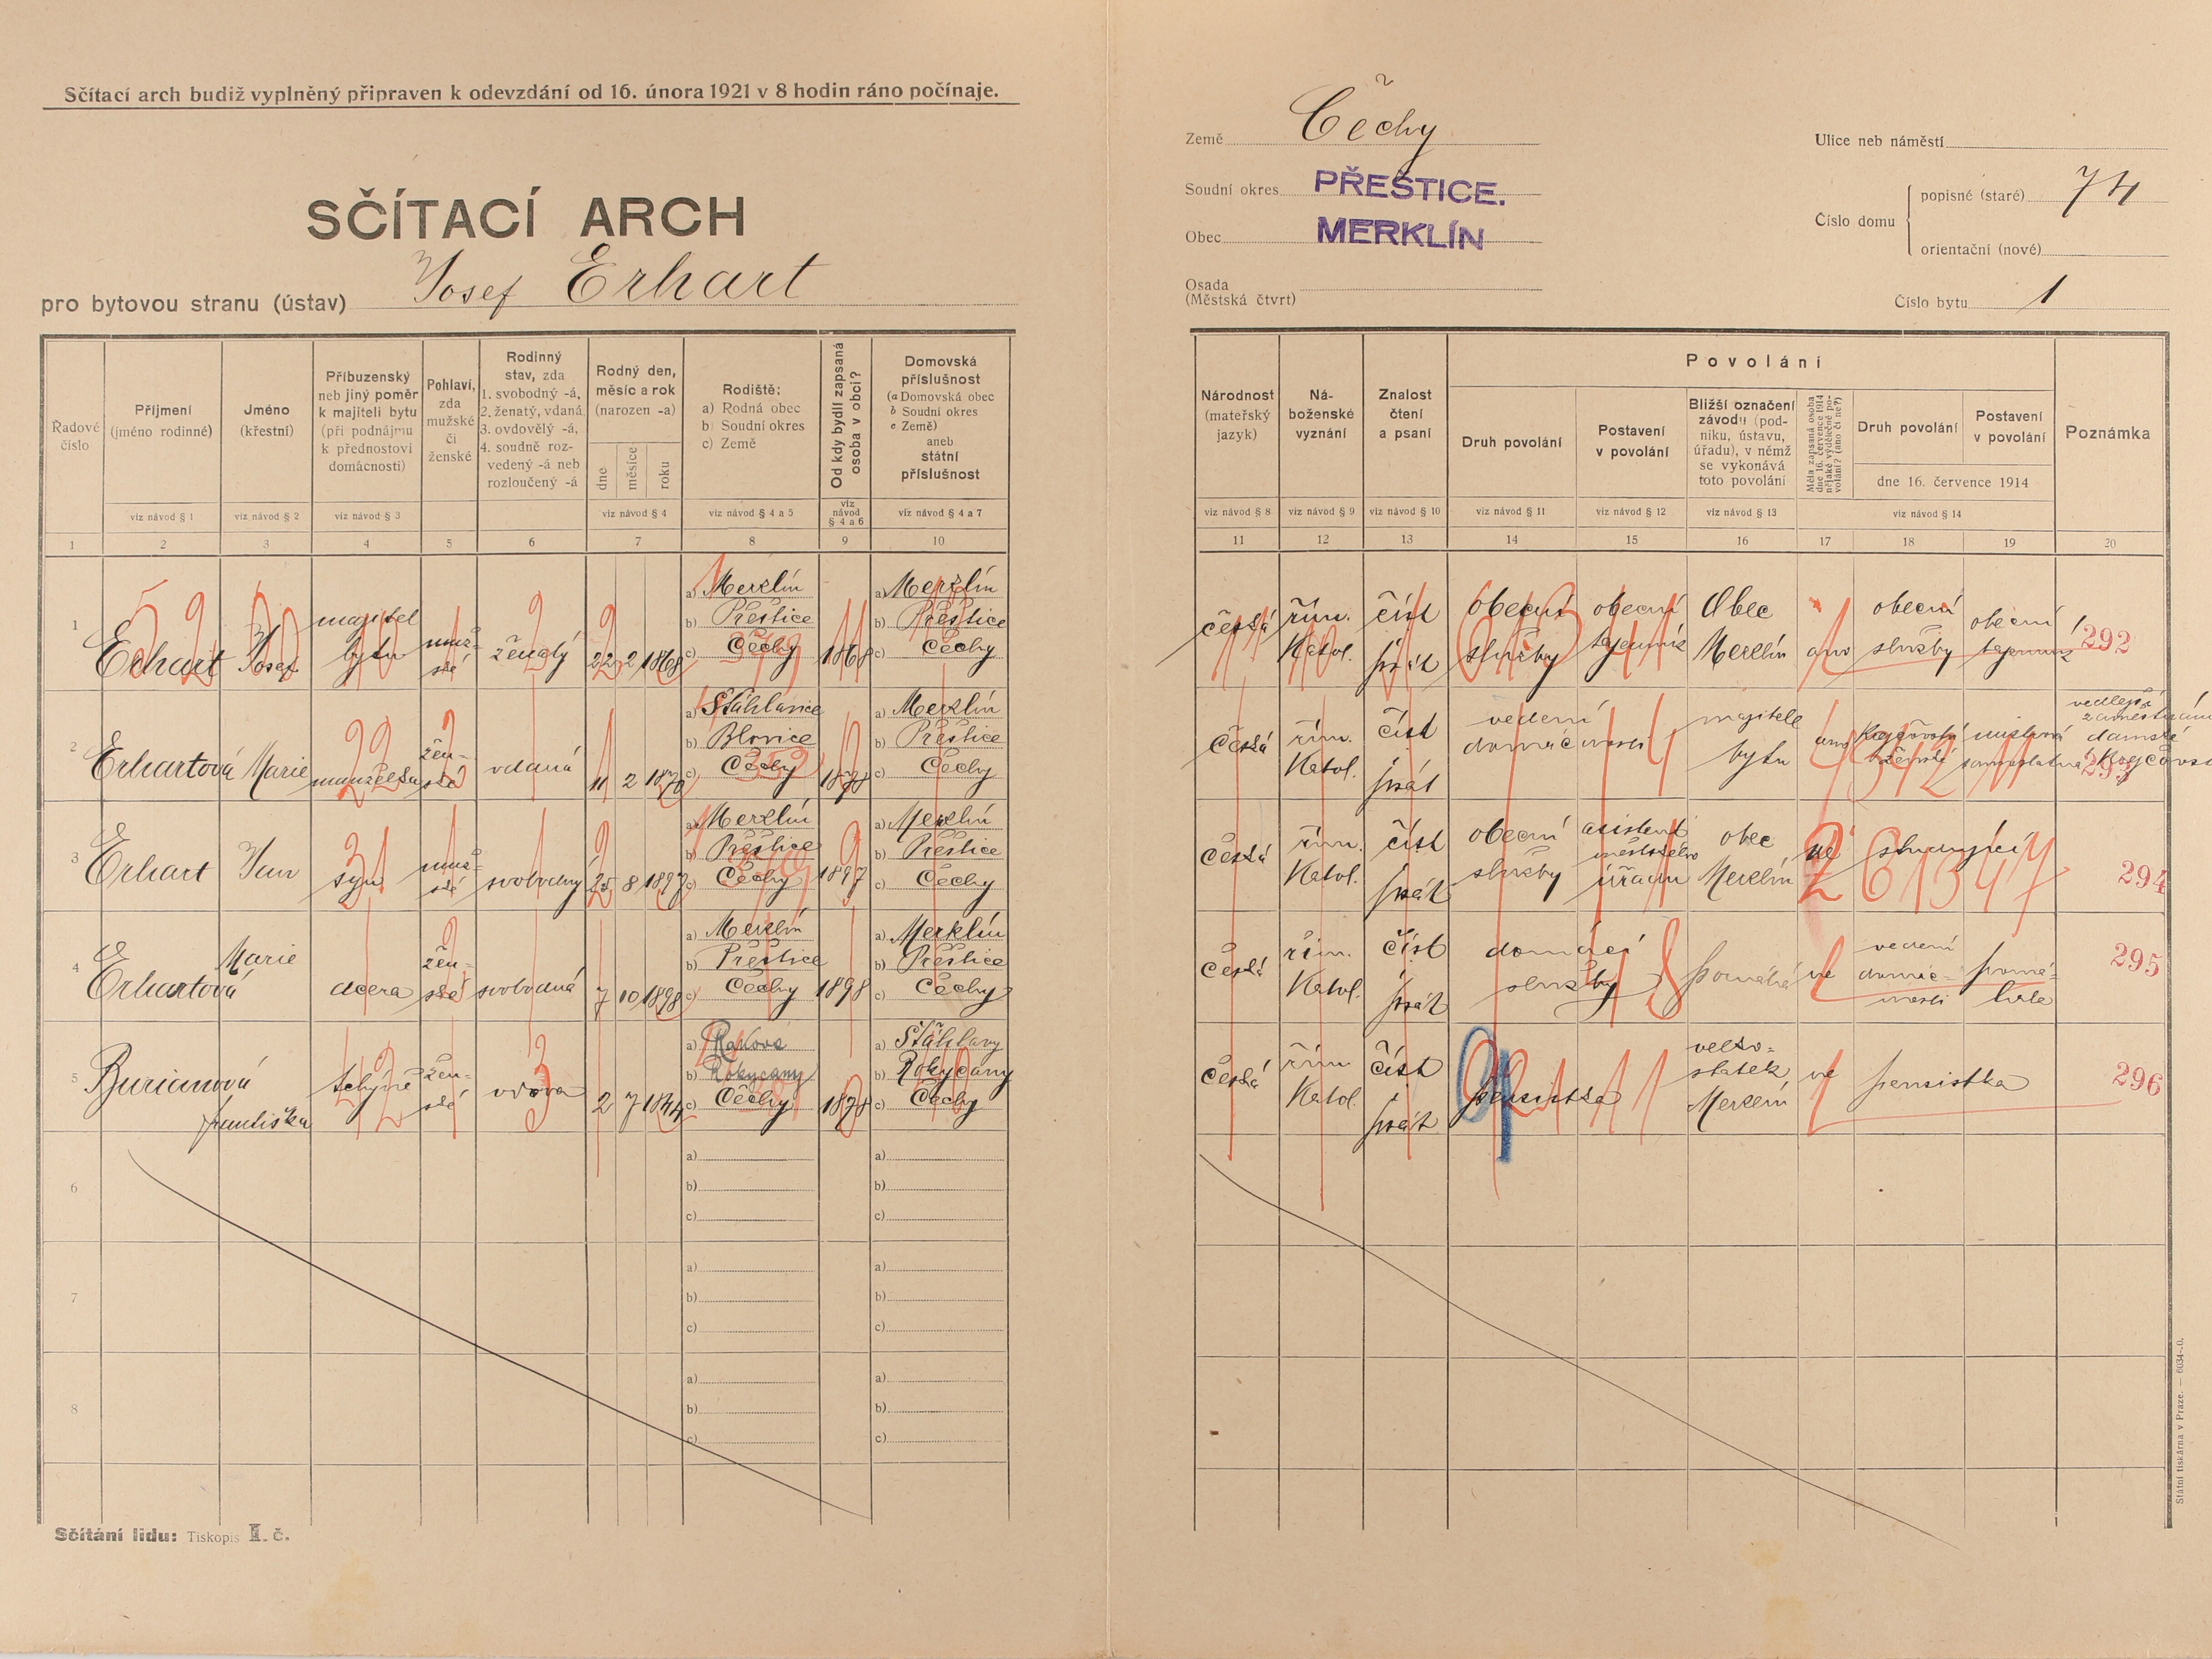 Sčítací arch budiž vyplněný připraven k odevzdání od 16. února 1921 v 8 hodin ráno počínaje.
SČÍTACÍ ARCH
pro bytovou stranu (ústav) Josef Erhart
Země Čechy
Soudní okres PŘEŠTICE.
Obec MERKLÍN
Osada
(Městská čtvrt)
Ulice neb náměstí
Číslo domu
popisné (staré) 74
orientační (nové)
Číslo bytu 1
Řadové číslo
Příjmení (jméno rodinné)
Jméno (křestní)
Příbuzenský neb jiný poměr k majiteli bytu (při podnájmu k přednostovi domácnosti)
Pohlaví, zda mužské či ženské
Rodinný stav, zda 1. svobodný -á, 2. ženatý, vdaná 3. ovdovělý -á, 4. soudně rozvedený -á neb rozloučený -á
Rodný den, měsíc a rok (narozen -a)
dne měsíce roku
Rodiště:
a) Rodná obec
b) Soudní okres
c) Země
Od kdy bydlí zapsaná osoba v obci?
Domovská příslušnost
(a Domovská obec
b Soudní okres
c Země)
aneb
státní příslušnost
viz návod § 1 viz návod § 2 viz návod § 3 viz návod § 4 viz návod § 4 a 5 viz návod § 4 a 6 viz návod § 4 a 7
1 2 3 4 5 6 7 8 9 10
Národnost (mateřský jazyk)
Náboženské vyznání
Znalost čtení a psaní
Povolání
Druh povolání
Postavení v povolání
Bližší označení závodu (podniku, ústavu, úřadu), v němž se vykonává toto povolání
Měla zapsaná osoba dne 16. července 1914 nějaké výdělečné povolání? (ano či ne?)
Druh povolání
Postavení v povolání
dne 16. července 1914
Poznámka
viz návod § 8 viz návod § 9 viz návod § 10 viz návod § 11 viz návod § 12 viz návod § 13 viz návod § 14
11 12 13 14 15 16 17 18 19 20
1 Erhart Josef majitel bytu mužské ženatý 22 2 1868
a) Merklín
b) Přeštice
c) Čechy
1868
a) Merklín
b) Přeštice
c) Čechy
česká řím. Katol. číst psát obecní služby obecní tajemník Obec Merklín ano obecní služby obecní tajemník 292
2 Erhartová Marie manželka ženské vdaná 11 2 1870
a) Šťáhlavice
b) Blovice
c) Čechy
1898
a) Merklín
b) Přeštice
c) Čechy
Česká řím. Katol. číst psát vedení domácnosti majitele bytu ano samostatná vedlejší zaměstnání dámské 293
3 Erhart Jan syn mužské svobodný 25 8 1897
a) Merklín
b) Přeštice
c) Čechy
1897
a) Merklín
b) Přeštice
c) Čechy
Česká řím. Katol. číst psát obecní služby asistent městského úřadu obec Merklín ne studující 294
4 Erhartová Marie dcera ženské svobodná 7 10 1898
a) Merklín
b) Přeštice
c) Čechy
1898
a) Merklín
b) Přeštice
c) Čechy
Česká řím. Katol. číst psát domácí služby pomáhá ne vedení domácnosti 295
5 Burianová Františka tchýně ženské vdova 2 7 1844
a) Raková
b) Rokycany
c) Čechy
1898
a) Šťáhlavy
b) Rokycany
c) Čechy
Česká řím Katol. číst psát pensistka velkostatek Merklín ne pensistka 296
6
a)
b)
c)
a)
b)
c)
7
a)
b)
c)
a)
b)
c)
8
a)
b)
c)
a)
b)
c)
Sčítání lidu: Tiskopis I. č.
Státní tiskárna v Praze. — 6034-20.